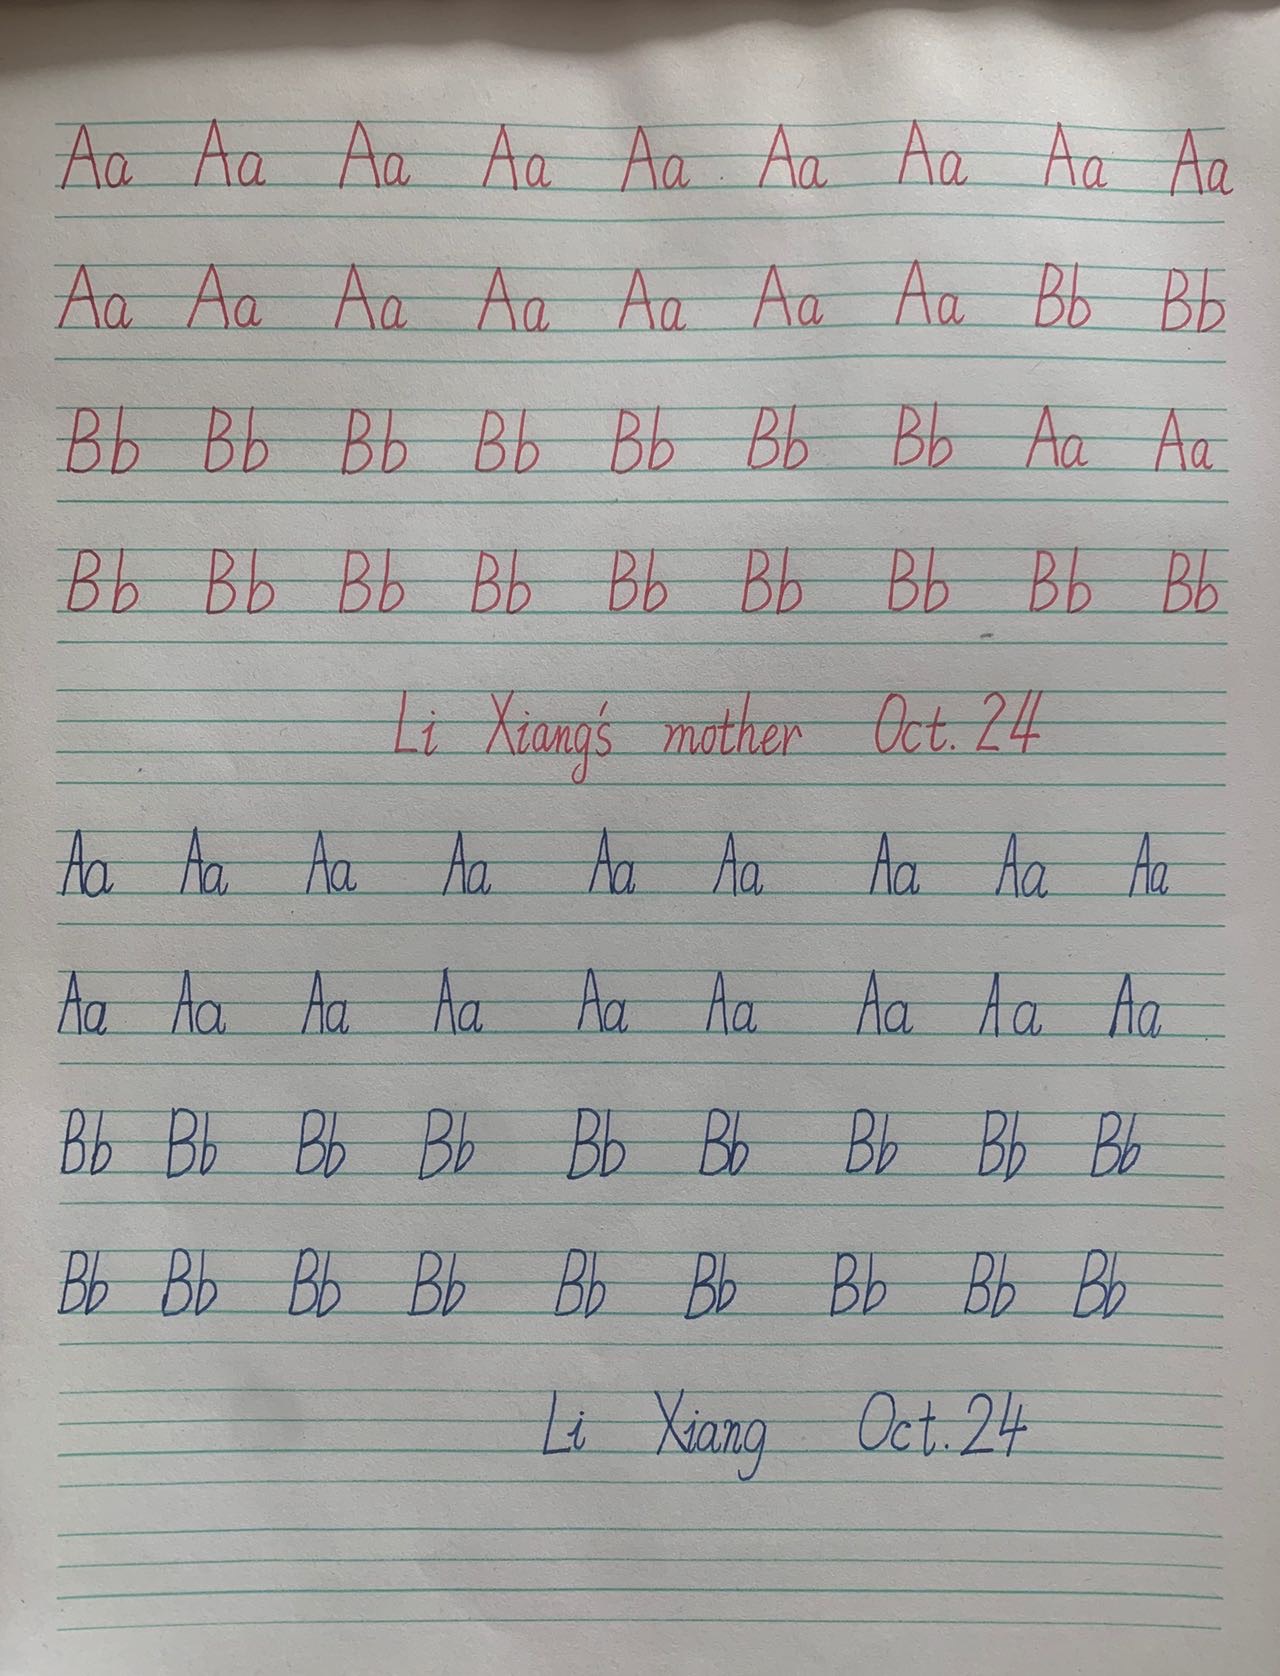 Aa Aa Aa Aa Aa Aa Aa Aa Aa
Aa Aa Aa Aa Aa Aa Aa Bb Bb
Bb Bb Bb Bb Bb Bb Bb Aa Aa
Bb Bb Bb Bb Bb Bb Bb Bb Bb
Li Xiang's mother Oct. 24
Aa Aa Aa Aa Aa Aa Aa Aa Aa
Aa Aa Aa Aa Aa Aa Aa Aa Aa
Bb Bb Bb Bb Bb Bb Bb Bb Bb
Bb Bb Bb Bb Bb Bb Bb Bb Bb
Li Xiang Oct. 24